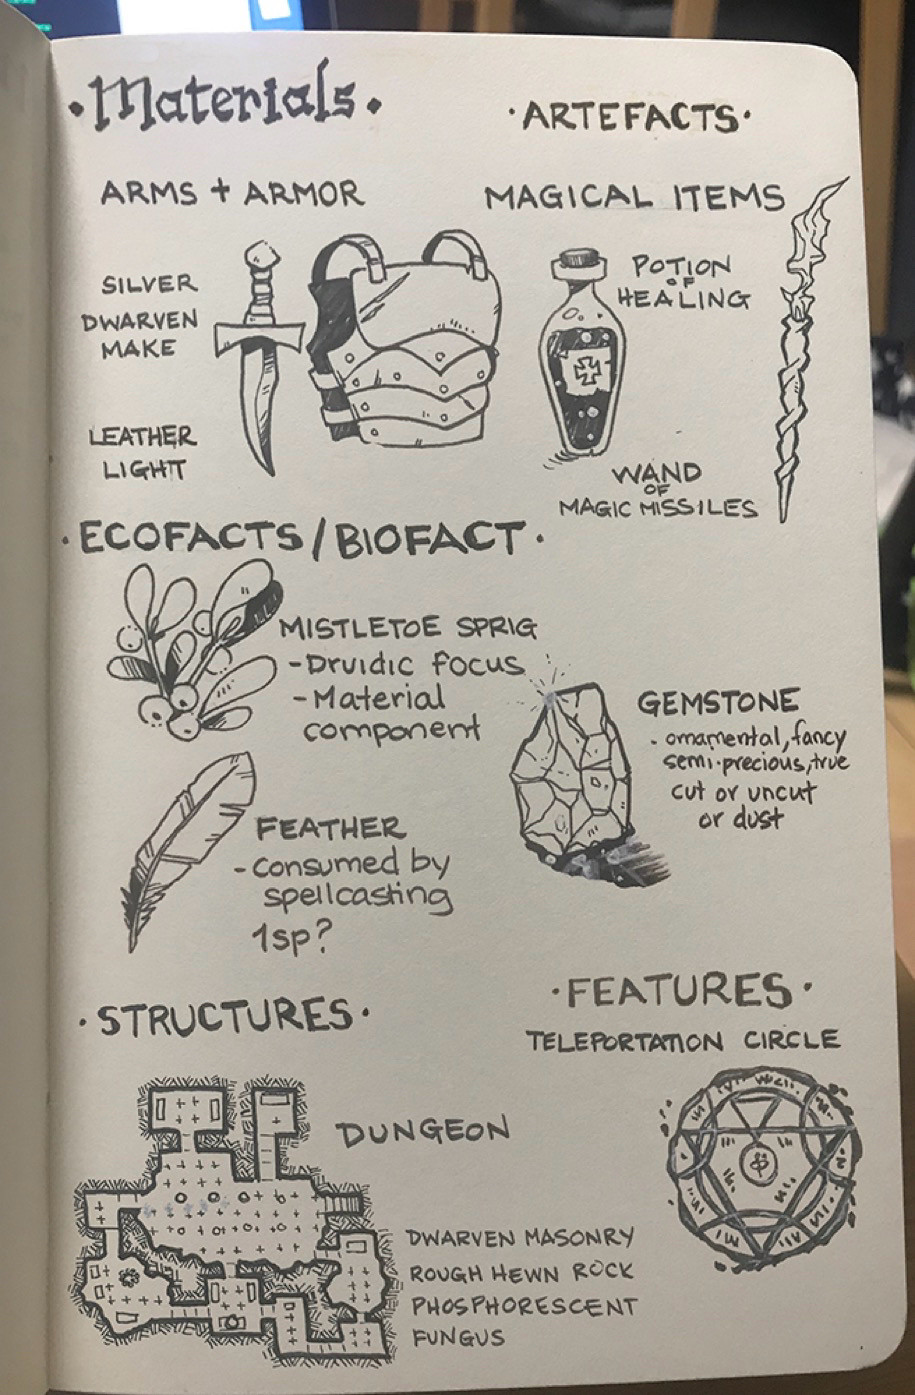 ·Materials·
·ARTEFACTS·
ARMS + ARMOR
MAGICAL ITEMS
SILVER
DWARVEN
MAKE
LEATHER
LIGHT
POTION
OF
HEALING
WAND
OF
MAGIC MISSILES
·ECOFACTS/BIOFACT·
MISTLETOE SPRIG
-Druidic focus
-Material
component
GEMSTONE
·ornamental, fancy
semi-precious, true
cut or uncut
or dust
FEATHER
-consumed by
spellcasting
1sp?
·STRUCTURES·
·FEATURES·
TELEPORTATION CIRCLE
DUNGEON
DWARVEN MASONRY
ROUGH HEWN ROCK
PHOSPHORESCENT
FUNGUS